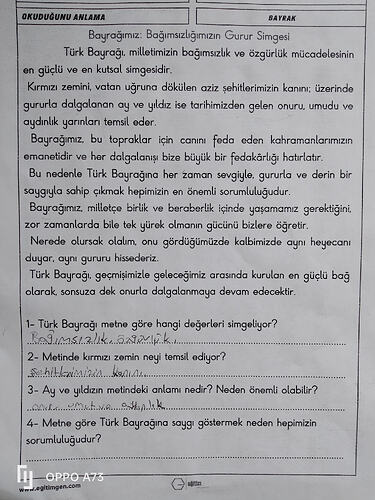 OKUDUĞUNU ANLAMA
BAYRAK
Bayrağımız: Bağımsızlığımızın Gurur Simgesi
Türk Bayrağı, milletimizin bağımsızlık ve özgürlük mücadelesinin
en güçlü ve en kutsal simgesidir.
Kırmızı zemini, vatan uğruna dökülen aziz şehitlerimizin kanını; üzerinde
gururla dalgalanan ay ve yıldız ise tarihimizden gelen onuru, umudu ve
aydınlık yarınları temsil eder.
Bayrağımız, bu topraklar için canını feda eden kahramanlarımızın
emanetidir ve her dalgalanışı bize büyük bir fedakârlığı hatırlatır.
Bu nedenle Türk Bayrağına her zaman sevgiyle, gururla ve derin bir
saygıyla sahip çıkmak hepimizin en önemli sorumluluğudur.
Bayrağımız, milletçe birlik ve beraberlik içinde yaşamamız gerektiğini,
zor zamanlarda bile tek yürek olmanın gücünü bizlere öğretir.
Nerede olursak olalım, onu gördüğümüzde kalbimizde aynı heyecanı
duyar, aynı gururu hissederiz.
Türk Bayrağı, geçmişimizle geleceğimiz arasında kurulan en güçlü bağ
olarak, sonsuza dek onurla dalgalanmaya devam edecektir.
1- Türk Bayrağı metne göre hangi değerleri simgeliyor?
Bağımsızlık, özgürlük,
2- Metinde kırmızı zemin neyi temsil ediyor?
şehitlerimizin kanını
3- Ay ve yıldızın metindeki anlamı nedir? Neden önemli olabilir?
4- Metne göre Türk Bayrağına saygı göstermek neden hepimizin
sorumluluğudur?
OPPO A73
www.egitimgen.com
eğitim